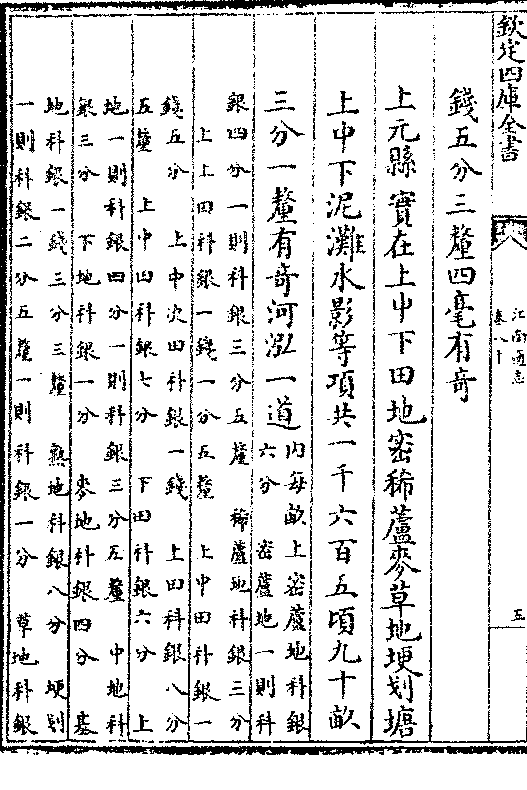 欽定四庫全書
江南通志
卷八十
五
錢五分三釐四毫有奇
上元縣 實在上中下田地密稀蘆麥草地埂刬塘
上中下泥灘水影等項共一千六百五頃九十畝
三分一釐有奇河泓一道
內每畝上密蘆地科銀
六分 密蘆地一則科
銀四分一則科銀三分五釐 稀蘆地科銀三分
上上田科銀一錢一分五釐 上中田科銀一
錢五分 上中次田科銀一錢 上田科銀八分
五釐 上中田科銀七分 下田科銀六分 上
地一則科銀四分一則科銀三分五釐 中地科
銀三分 下地科銀一分 麥地科銀四分 基
地科銀一錢三分三釐 熟地科銀八分 埂刬
一則科銀二分五釐一則科銀一分 草地科銀